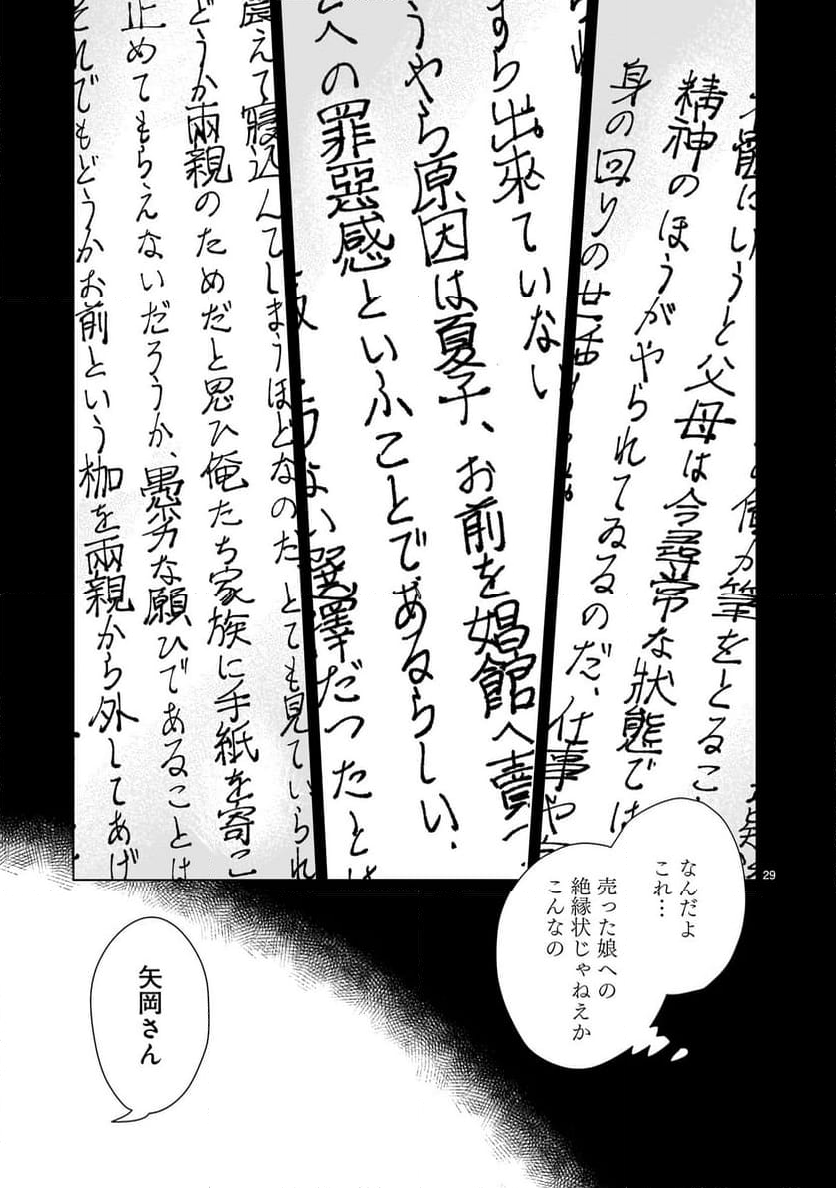 父母は今尋常な状態では
精神のほうがやられてゐるのだ、仕事や
身の回りの世話
すら出來ていない
うやら原因は夏子、お前を娼館へ賣
への罪惡感といふことであるらしい、
ない選擇だったとは
震えて寝込んてしまうほどなのだ、とても見ていられ
どうか兩親のためだと思ひ俺たち家族に手紙を寄こ
止めてもらえないだろうか、愚劣な願ひであることは
それでもどうかお前という枷を兩親から外してあげ
29
なんだよ
これ…
売った娘への
絶縁状じゃねえか
こんなの
矢岡さん